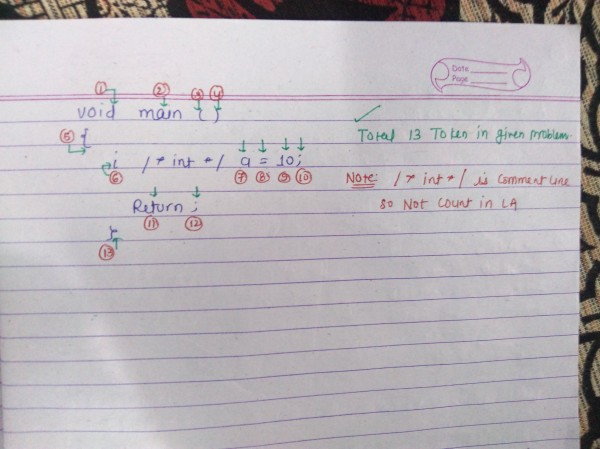 Date
Page
① ② ③ ④
void main ( )
✓ Total 13 Token in given problem
⑤ {
i /* int */ a = 10;
⑥ ⑦ ⑧ ⑨ ⑩
Note: /* int */ is comment line
so Not count in LA
Return ;
⑪ ⑫
}
⑬